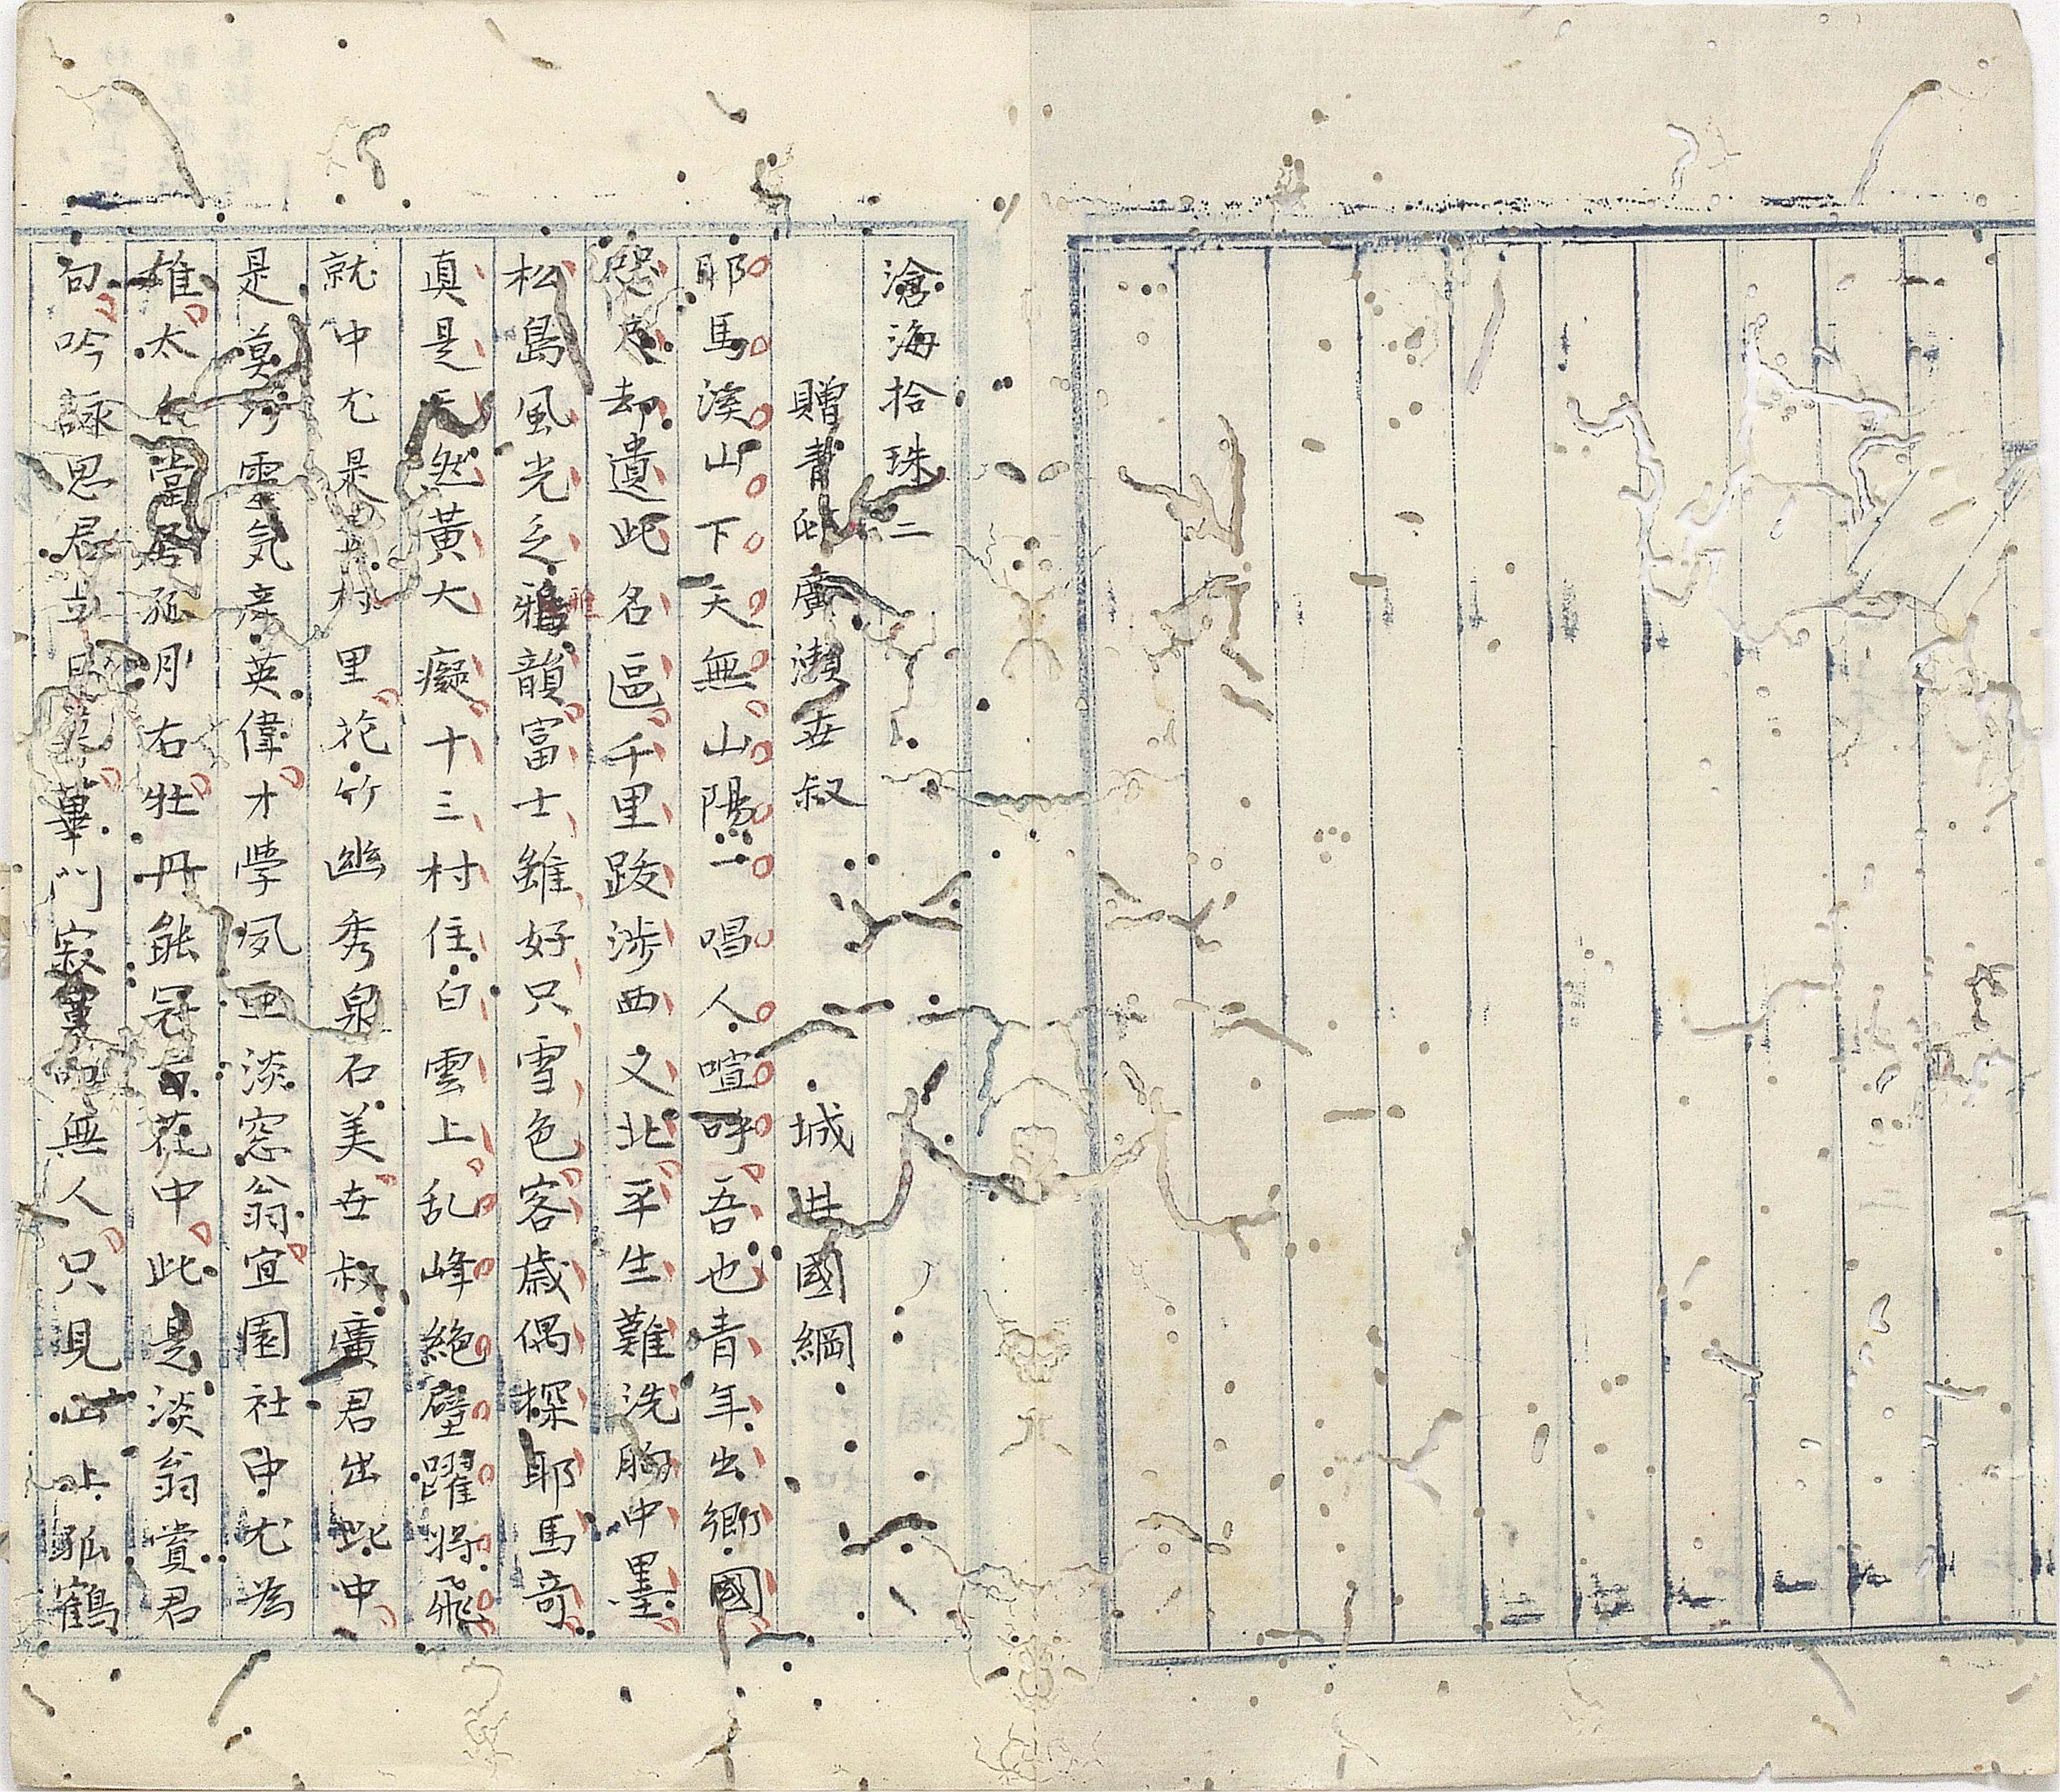 滄海拾珠二
贈青邨廣瀨世叔　城井國綱
耶馬渓山下天無山陽一唱人喧呼吾也青年出鄉國
怨尽却遺此名區千里跋渉西又北平生難洗胸中墨
松島風光乏雅韻富士雖好只雪色客歳偶探耶馬奇
真是天然黃大癡十三村住白雲上乱峰絶壁躍将飛
就中尤是村里花竹幽秀泉石美世叔廣君出此中
是莫乃霊気産英偉才學夙亜淡窓翁宜園社中尤為
雄太白當居孤月右牡丹能冠百花中此是淡翁賞君
句吟詠思君立晚華門寂寞無人只見山上孤鶴